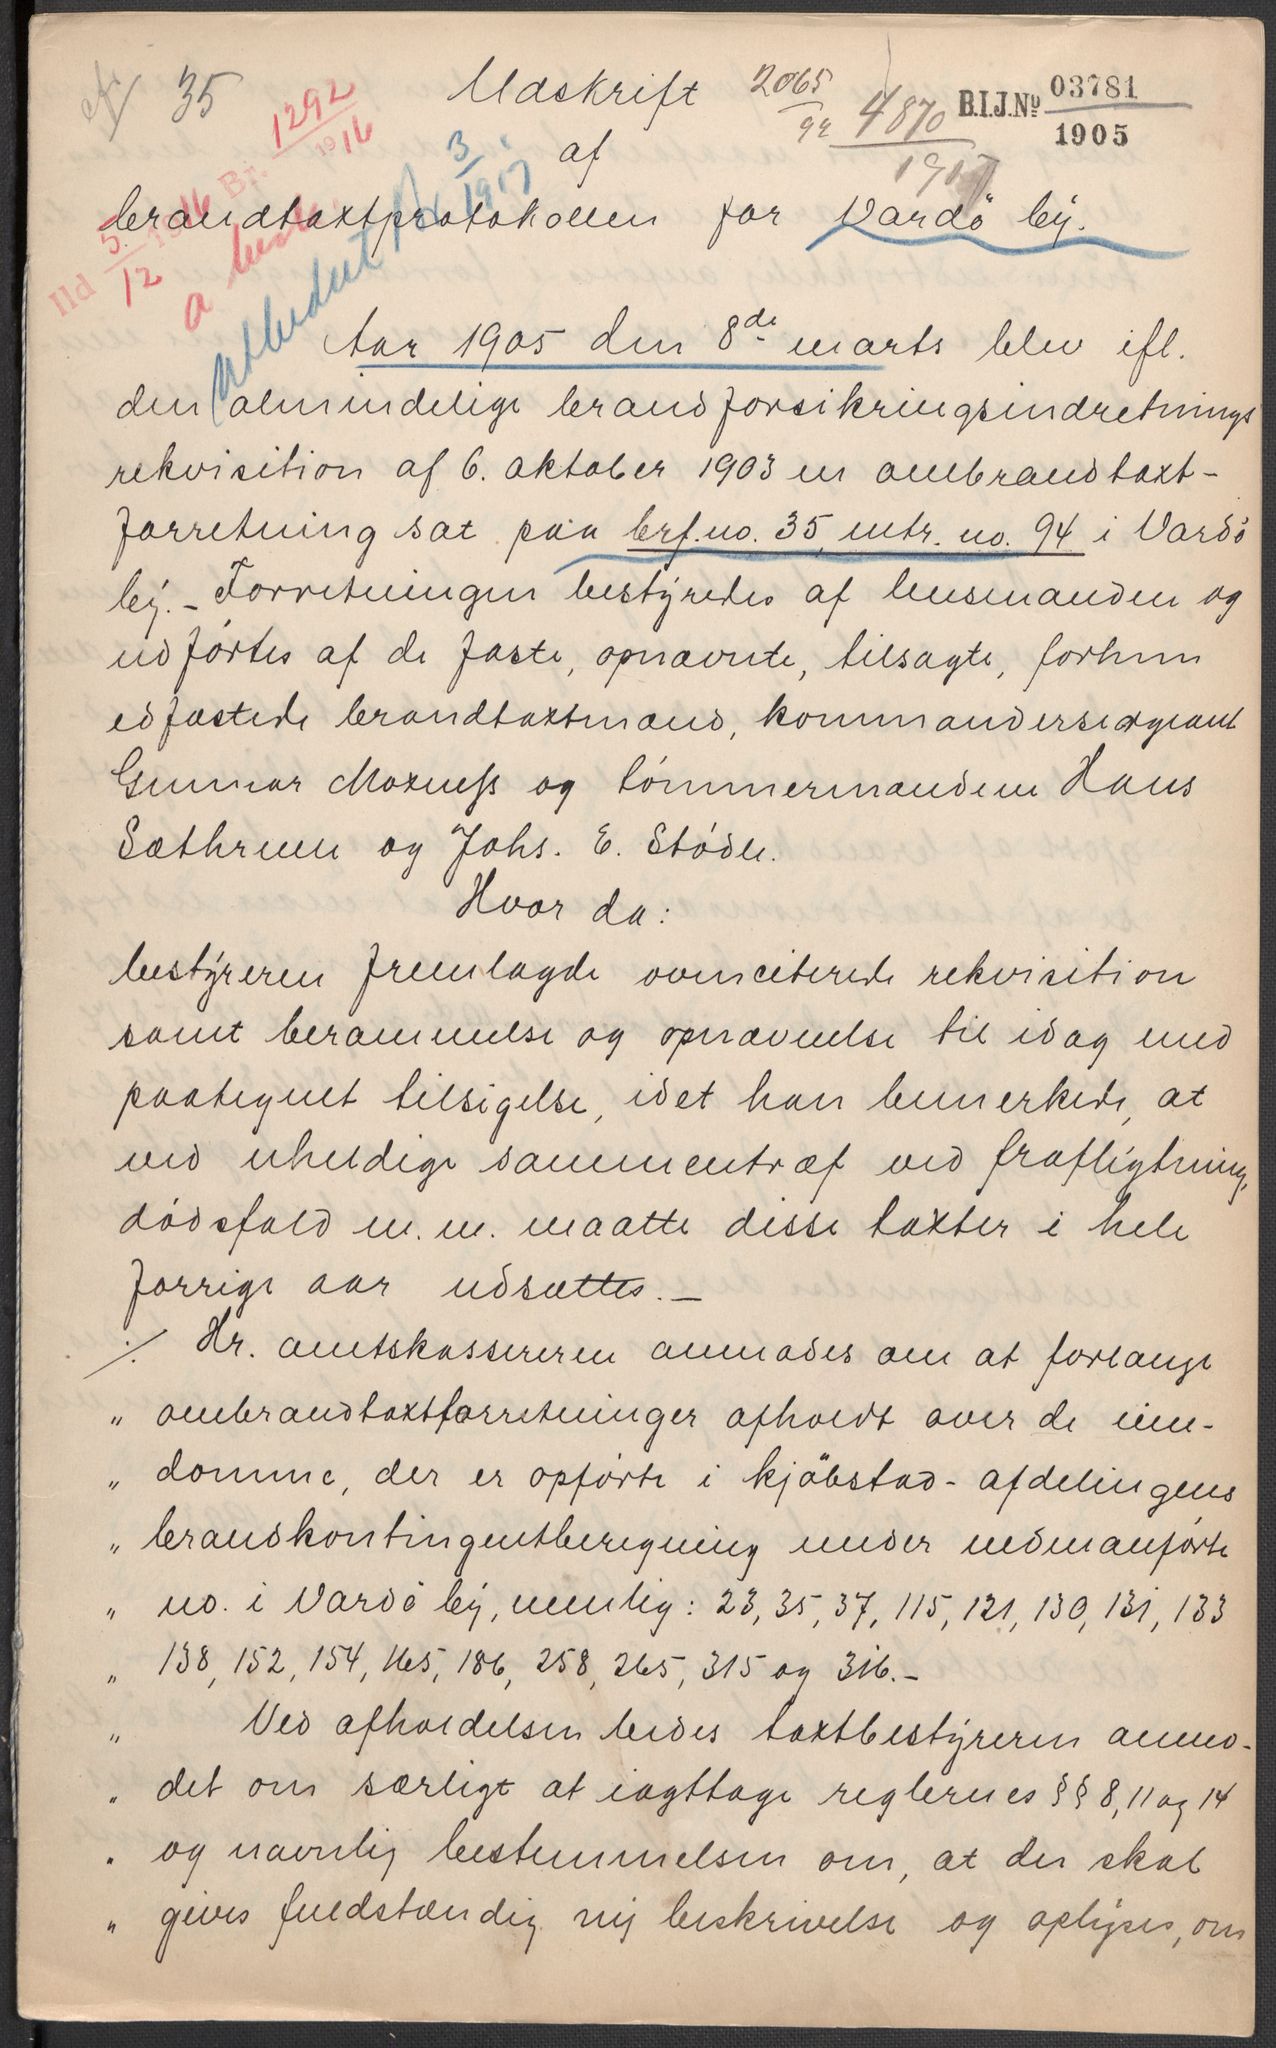 35
Udskrift
2065
92
4870
B.I.J.No 03781
1905
af
1292
1916
Br.
3
1917
brandtaxtprotokollen for Vardö by.
Ild 5. 1916
12
a
Aar 1905 den 8de marts blev ifl.
den almindelige brandforsikringsindretnings
rekvisition af 6. oktober 1903 en ombrandtaxt-
forretning sat paa brf. no. 35, mtr. no. 94 i Vardö
by. - Forretningen bestyredes af lensmanden og
udförtes af de faste, opnævnte, tilsagte, forhen
edfæstede brandtaxtmænd, kommandersergeant
Gunnar Moxness og tömmermændene Hans
Sæthrenn og Johs. E. Stödle.
Hvor da:
bestyreren fremlagde ovenciterede rekvisition
samt berammelse og opnævnelse til idag med
paategnet tilsigelse, idet han bemerkede, at
ved uheldige sammentræf ved fraflÿtning,
dödsfald m. m. maatte disse taxter i hele
forrige aar udsættes. -
./. Hr. amtskassereren anmodes om at forlange
" ombrandtaxtforretninger afholdt over de eien-
" domme, der er opförte i kjöbstad-afdelingens
" brandkontingentberegning under nedenanförte
" no. i Vardö by, nemlig: 23, 35, 37, 115, 121, 130, 131, 133
" 138, 152, 154, 165, 186, 258, 265, 315 og 316. -
" Ved afholdelsen bedes taxtbestyreren anmo-
" det om særligt at iagttage reglernes §§ 8, 11 og 14
" og navnlig bestemmelsen om, at der skal
" gives fuldstændig ny beskrivelse og oplyses, om